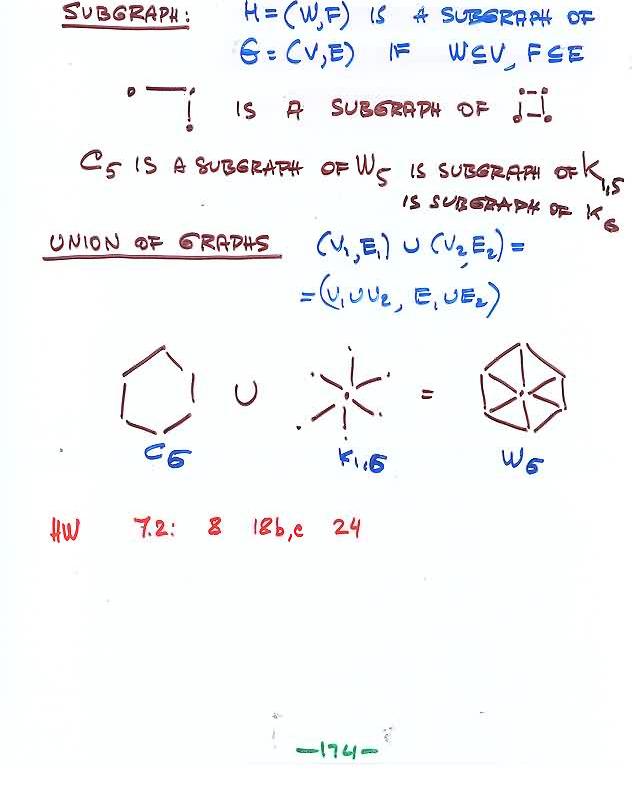 SUBGRAPH: H=(W,F) IS A SUBGRAPH OF
G=(V,E) IF W⊆V, F⊆E
IS A SUBGRAPH OF
C5 IS A SUBGRAPH OF W5 IS SUBGRAPH OF K1,5
IS SUBGRAPH OF K6
UNION OF GRAPHS (V1,E1) ∪ (V2,E2)=
=(V1∪V2, E1∪E2)
∪ =
C6 K1,6 W6
HW 7.2: 8 18b,c 24
-174-